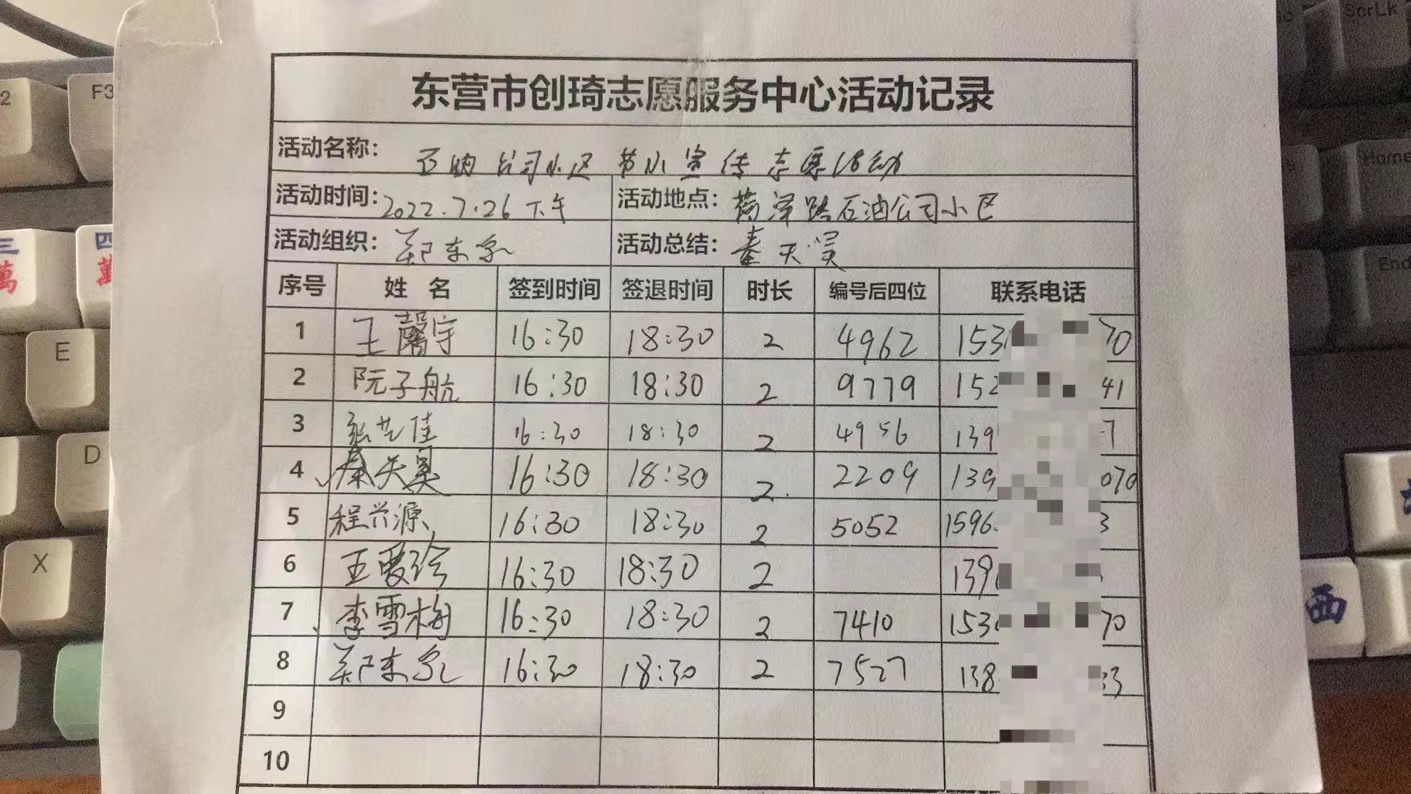 东营市创琦志愿服务中心活动记录
活动名称: 公司小区 节水宣传志愿活动
活动时间: 2022.7.26 下午 活动地点: 菏泽路石油公司小区
活动组织: 郑东 活动总结: 秦天昊
序号 姓 名 签到时间 签退时间 时长 编号后四位 联系电话
1 王馨宇 16:30 18:30 2 4962 153 70
2 阮子航 16:30 18:30 2 9779 152 41
3 张艺佳 16:30 18:30 2 4956 139 7
4 秦天昊 16:30 18:30 2 2209 139 070
5 程兴源 16:30 18:30 2 5052 1596 3
6 王爱珍 16:30 18:30 2 139
7 李雪梅 16:30 18:30 2 7410 153 70
8 郑东 16:30 18:30 2 7527 138 33
9
10
F3
E
D
X
ScrLk
Home
End
三萬
四萬
西